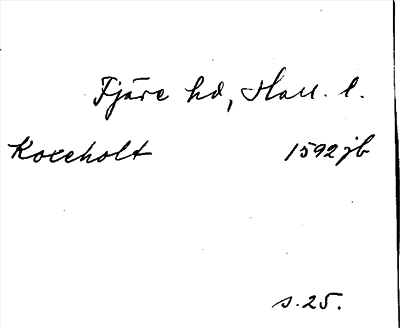 Fjäre hd, Hall. l.
Koxeholt 1592 jb
s. 25.